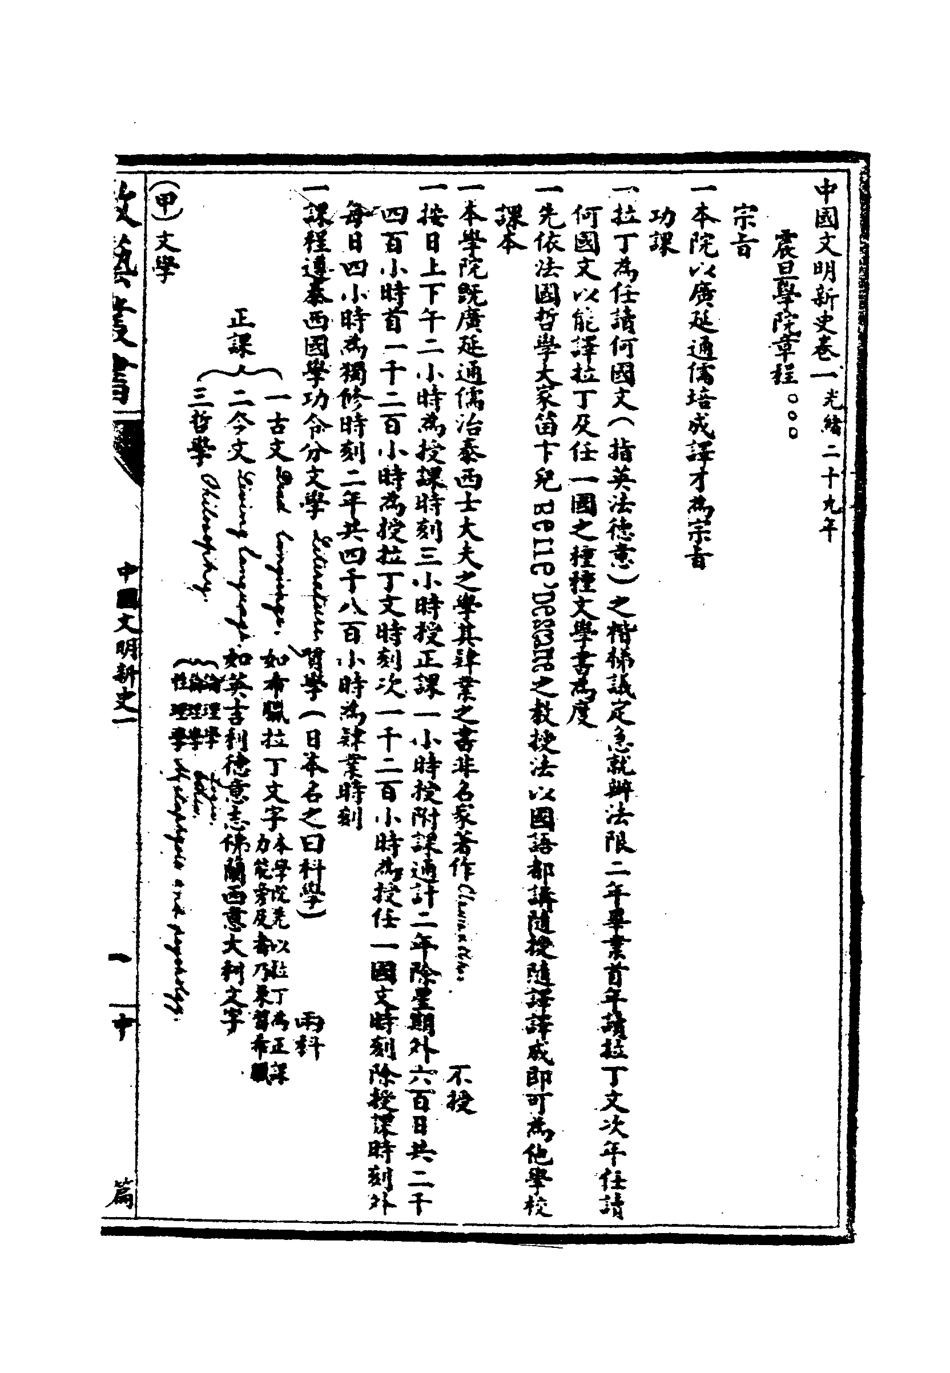 中國文明新史卷一 光緒二十九年
震旦學院章程
宗旨
一本院以廣延通儒培成譯才為宗旨
功課
一拉丁為任讀何國文(指英法德意)之楷梯議定急就辦法限二年畢業首年讀拉丁文次年任讀
何國文以能譯拉丁及任一國之種種文學書為度
一先依法國哲學大家笛卡兒之教授法以國語都講隨授隨譯譯成即可為他學校
課本
一本學院既廣延通儒治泰西士大夫之學其肄業之書非名家著作 不授
一按日上下午二小時為授課時刻三小時授正課一小時授附課通計二年除星期外六百日共二千
四百小時首一千二百小時為授拉丁文時刻次一千二百小時為授任一國文時刻除授課時刻外
每日四小時為獨修時刻二年共四千八百小時為肄業時刻
一課程遵泰西國學功令分文學 Literature 質學(日本名之曰科學) 兩科
(甲)文學
正課
一古文 Dead language. 如希臘拉丁文字 本學院先以拉丁為正課
力能旁及者乃兼習希臘
二今文 Living language. 如英吉利德意志佛蘭西意大利文字
三哲學 Philosophy.
論理學 Logic.
倫理學
性理學
政藝叢書
中國文明新史一
一
中
篇